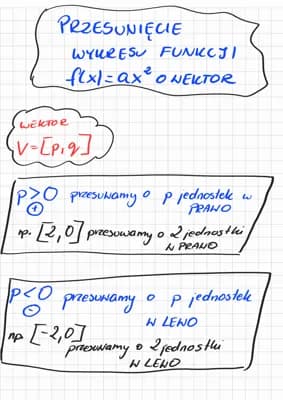 PRZESUNIĘCIE
WYKRESU FUNKCJI
f(x)=ax² O WEKTOR
WEKTOR
V=[p,q]
p>0 przesuwamy o p jednostek w
+
PRAWO
np. [2,0] przesuwamy o 2 jednostki
W PRAWO
p<0 przesuwamy o p jednostek
-
W LEWO
np [-2,0]
przesuwamy o 2 jednostki
W LEWO